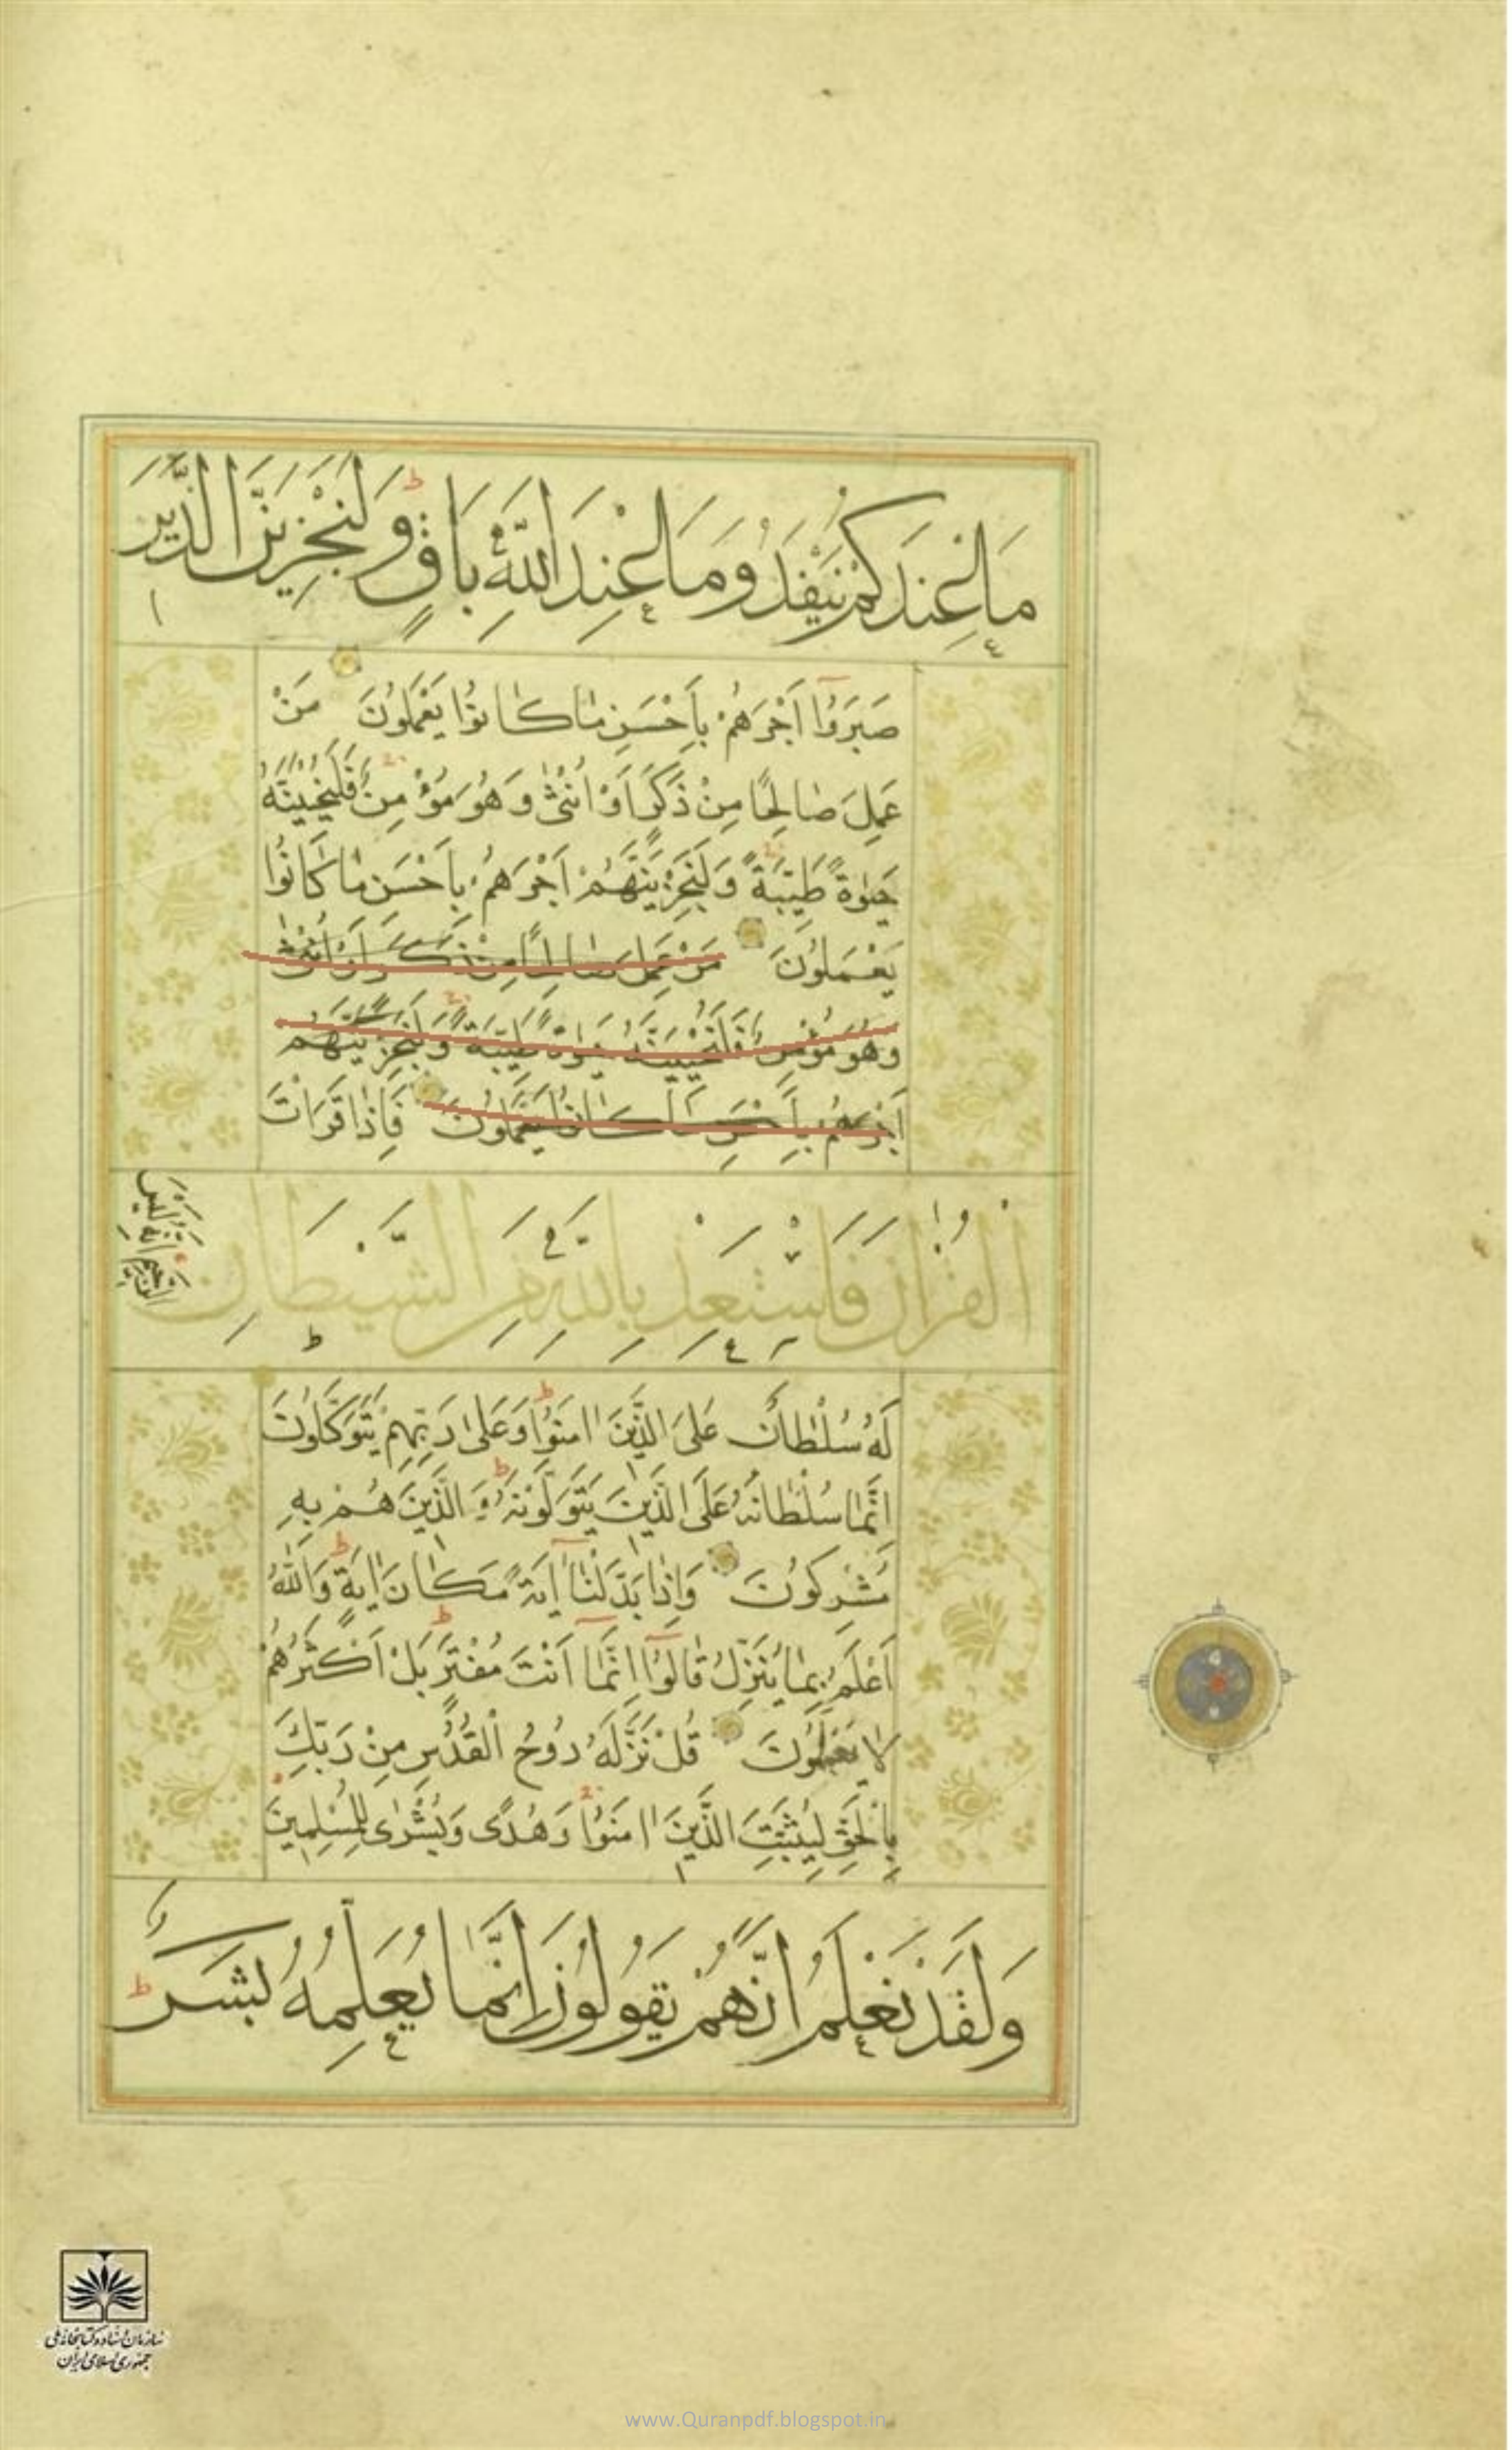 مَا عِنْدَكُمْ يَنْفَدُ وَمَا عِنْدَ اللَّهِ بَاقٍ وَلَنَجْزِيَنَّ الَّذِينَ
صَبَرُوا أَجْرَهُمْ بِأَحْسَنِ مَا كَانُوا يَعْمَلُونَ مَنْ
عَمِلَ صَالِحًا مِنْ ذَكَرٍ أَوْ أُنْثَى وَهُوَ مُؤْمِنٌ فَلَنُحْيِيَنَّهُ
حَيٰوةً طَيِّبَةً وَلَنَجْزِيَنَّهُمْ أَجْرَهُمْ بِأَحْسَنِ مَا كَانُوا
يَعْمَلُونَ مَنْ عَمِلَ صَالِحًا مِنْ ذَكَرٍ أَوْ أُنْثَى
وَهُوَ مُؤْمِنٌ فَلَنُحْيِيَنَّهُ حَيٰوةً طَيِّبَةً وَلَنَجْزِيَنَّهُمْ
أَجْرَهُمْ بِأَحْسَنِ مَا كَانُوا يَعْمَلُونَ فَإِذَا قَرَأْتَ
الْقُرْآنَ فَاسْتَعِذْ بِاللَّهِ مِنَ الشَّيْطَانِ
الرَّجِيمِ إِنَّهُ لَيْسَ
لَهُ سُلْطَانٌ عَلَى الَّذِينَ اٰمَنُوا وَعَلَى رَبِّهِمْ يَتَوَكَّلُونَ
اِنَّمَا سُلْطَانُهُ عَلَى الَّذِينَ يَتَوَلَّوْنَهُ وَالَّذِينَ هُمْ بِهِ
مُشْرِكُونَ وَإِذَا بَدَّلْنَا اٰيَةً مَكَانَ اٰيَةٍ وَاللَّهُ
أَعْلَمُ بِمَا يُنَزِّلُ قَالُوا اِنَّمَا أَنْتَ مُفْتَرٍ بَلْ أَكْثَرُهُمْ
لَا يَعْلَمُونَ قُلْ نَزَّلَهُ رُوحُ الْقُدُسِ مِنْ رَبِّكَ
بِالْحَقِّ لِيُثَبِّتَ الَّذِينَ اٰمَنُوا وَهُدًى وَبُشْرَى لِلْمُسْلِمِينَ
وَلَقَدْ نَعْلَمُ أَنَّهُمْ يَقُولُونَ إِنَّمَا يُعَلِّمُهُ بَشَرٌ
سازمان اسناد و کتابخانه ملی
جمهوری اسلامی ایران
www.Quranpdf.blogspot.in